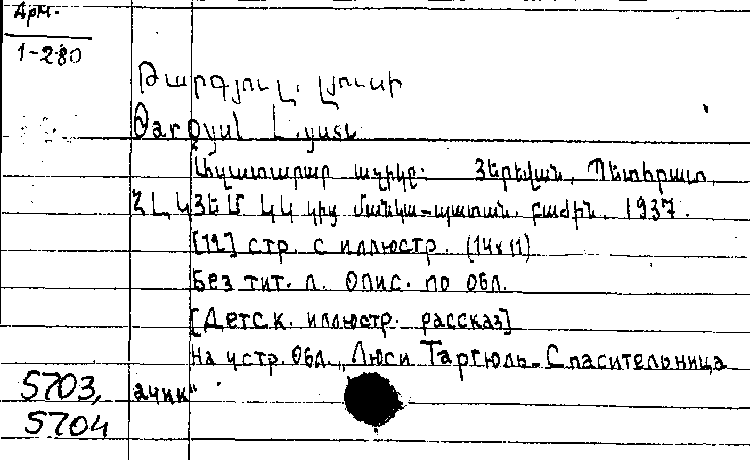 Арм.
1-280
Թարգյուլ. Լյուսի
Θargyul Lyusi
Ազատարար աղիկը: Յերեվան, Պետհրատ,
ՀԼԿՅԵՄ ԿԿ կից մանկա-պատան. բաժին. 1937.
[12] стр. с иллюстр. (14x11)
Без тит. л. Опис. по обл.
[Детск. иллюстр. рассказ]
На 4 стр. обл. „Люси Таргюль-Спасительница
5703, ачик"
5704